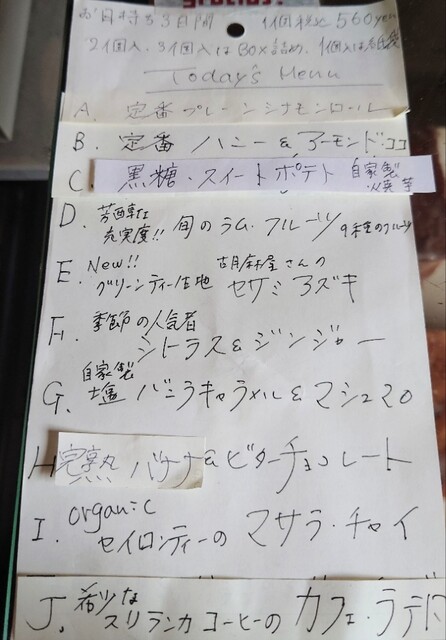 お日持ち3日間 1個税込560yen
2個入、3個入はBox詰め、1個入は紙袋
Today's Menu
A. 定番 プレーンシナモンロール
B. 定番 ハニー&アーモンド・ココ
C. 黒糖・スイートポテト 自家製焼芋
D. 芳醇な充実度!! 旬のラム・フルーツ 9種のフルーツ
E. New!! グリーンティー生地 胡麻屋さんの セサミアズキ
F. 季節の人気者 シトラス&ジンジャー
G. 自家製 塩バニラキャラメル&マシュマロ
H 完熟 バナナ&ビターチョコレート
I. organic セイロンティーの マサラ・チャイ
J. 希少な スリランカコーヒーの カフェ・ラテ